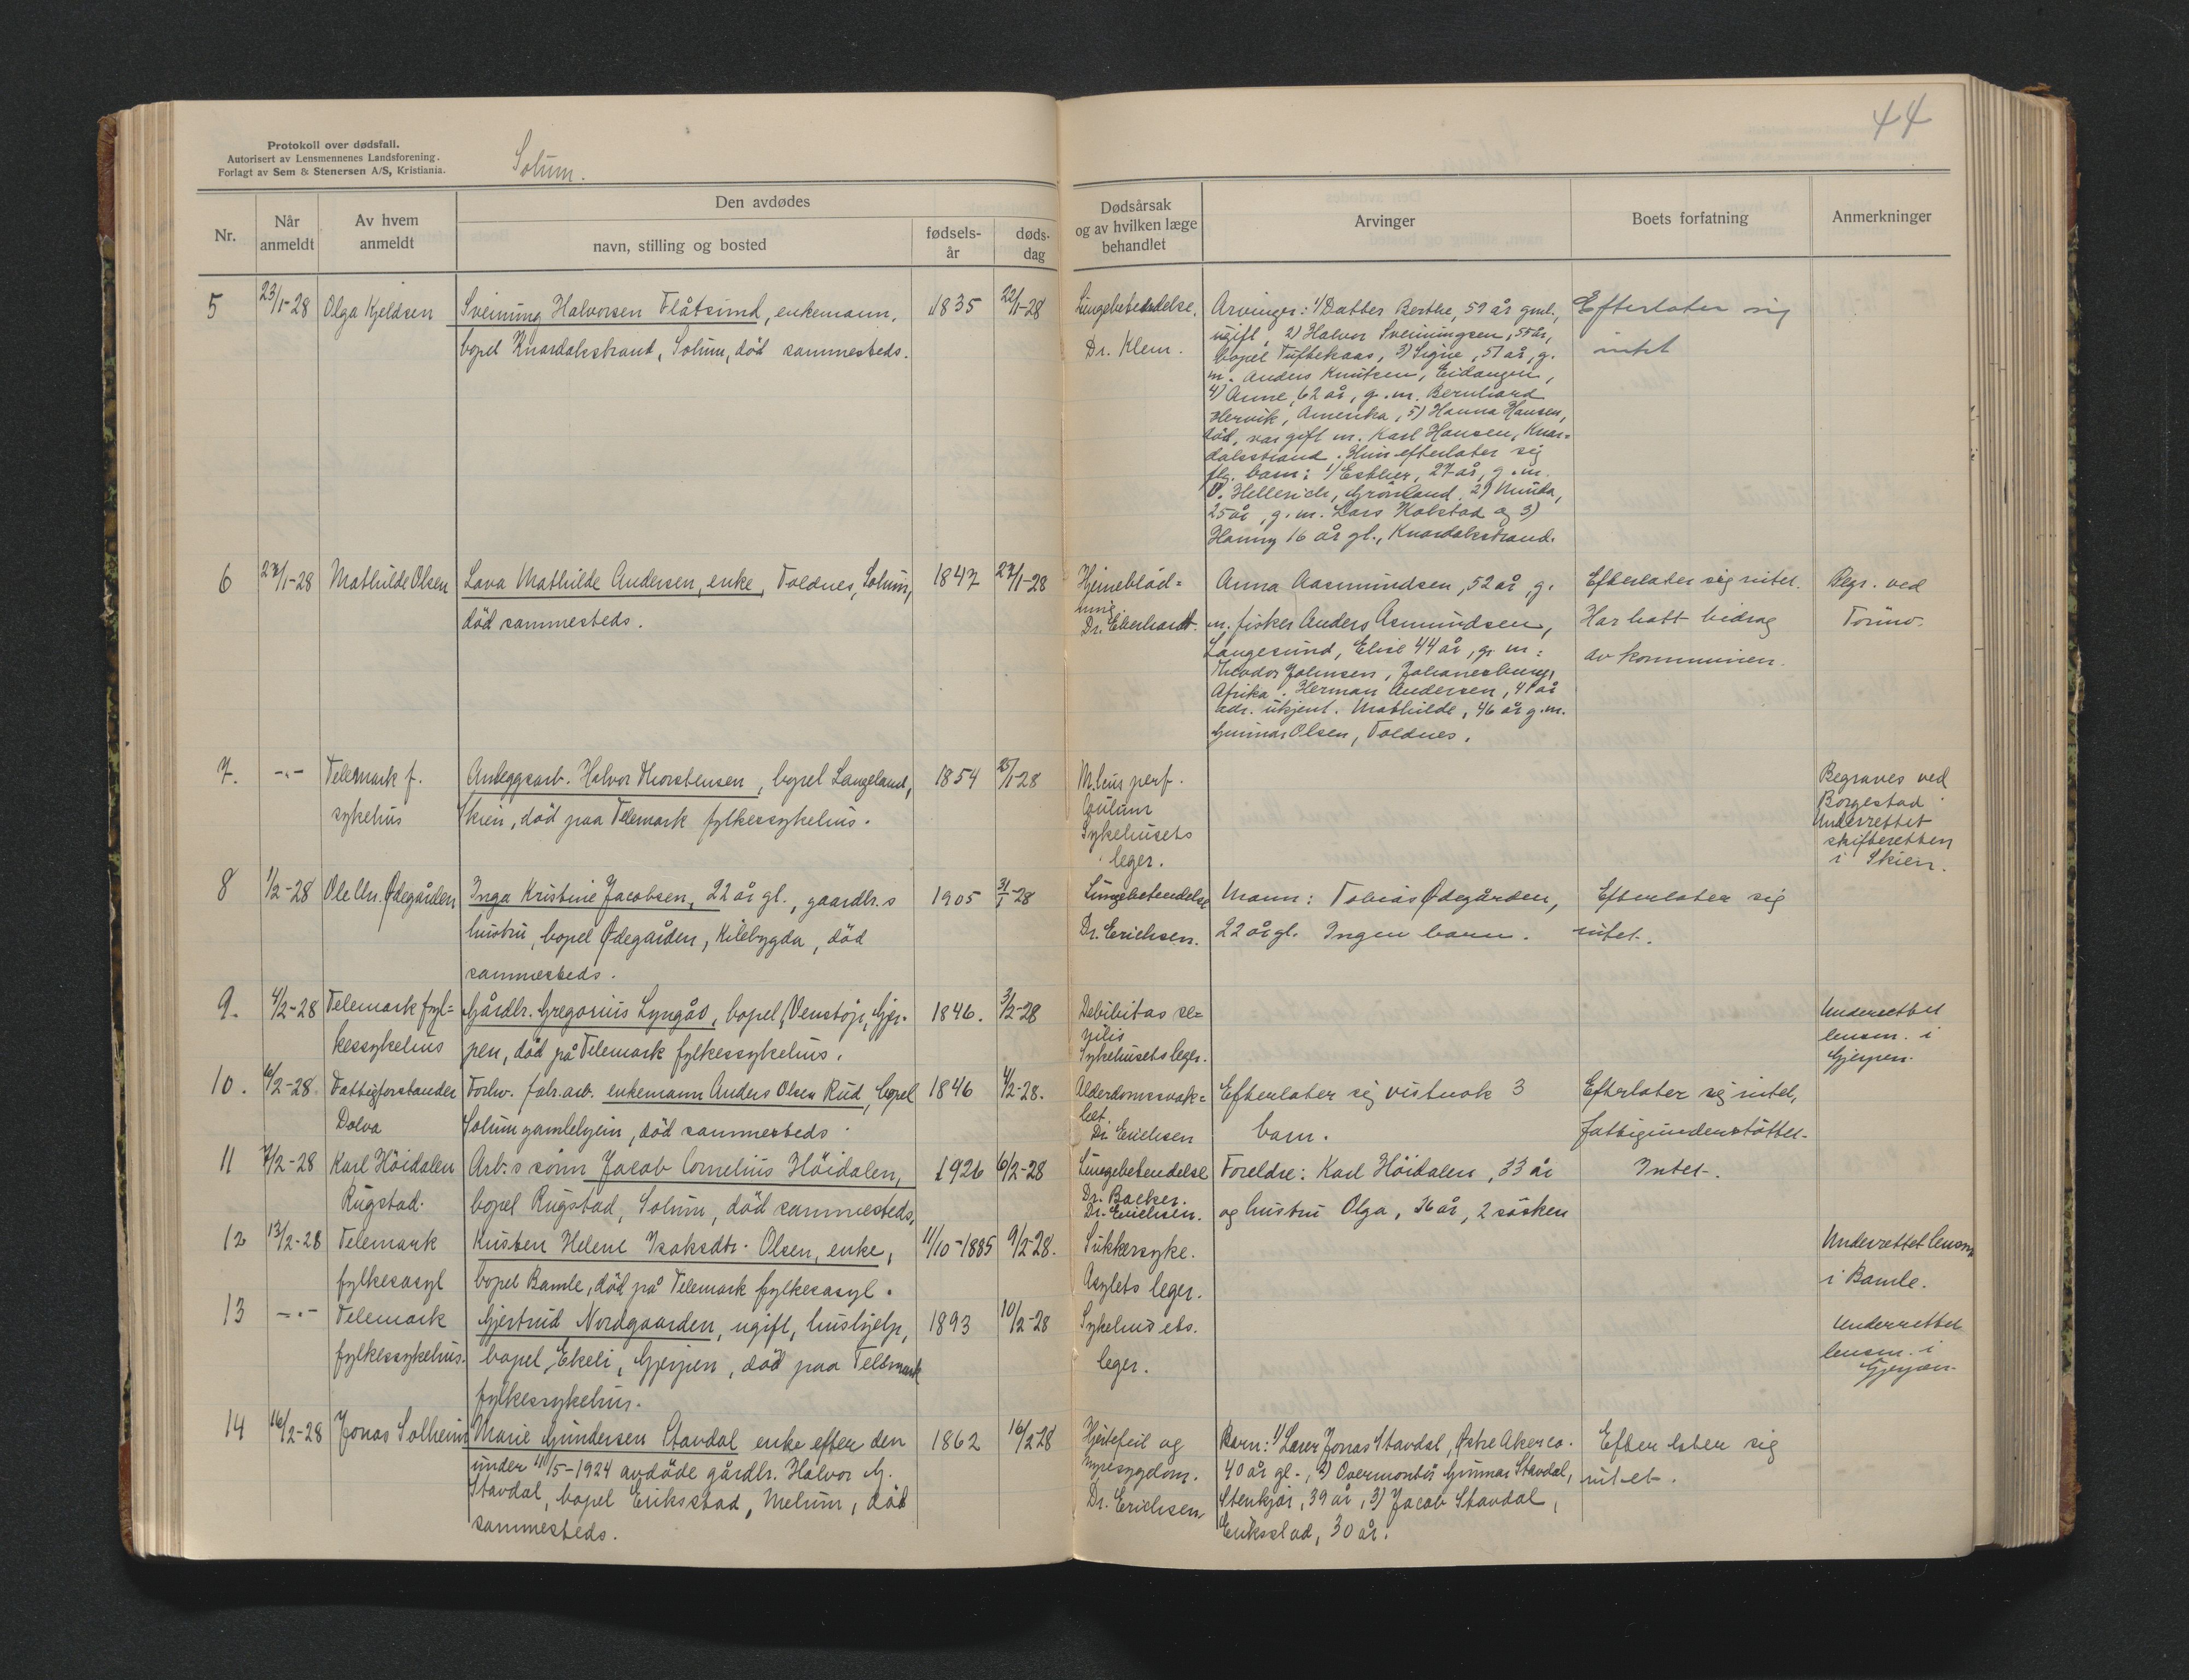 44
Protokoll over dødsfall.
Autorisert av Lensmennenes Landsforening.
Forlagt av Sem & Stenersen A/S, Kristiania.
Solum.
Nr.
Når anmeldt
Av hvem anmeldt
Den avdødes
navn, stilling og bosted
fødsels-år
døds-dag
Dødsårsak
og av hvilken læge
behandlet
Arvinger
Boets forfatning
Anmerkninger
5 23/1-28 Olga Kjeldsen
Sveinung Halvorsen Flåtsund, enkemann,
bopel Knardalsstrand, Solum, död sammesteds.
1835 22/1-28
Lungebetendelse.
Dr. Klem.
Arvinger: 1) Datter Berthe, 59 år gml.,
ugift, 2) Halvor Sveinungsen, 55 år,
bopel Tuftekaas, 3) Signe, 51 år, g.
m. Anders Knutsen, Eidanger,
4) Anne, 62 år, g. m. Bernhard
Hervik, Amerika, 5) Hanna Hansen,
död, var gift m. Karl Hansen, Knar=
dalsstrand. Hun efterlater sig
flg. barn: 1) Esther, 27 år, g. m.
Hellerich, Grönland, 2)
25 år, g. m. Lars Kolstad og 3)
Hanny 16 år gl., Knardalsstrand.
Efterlater sig
intet
6 27/1-28 Mathilde Olsen
Lava Mathilde Andersen, enke, Voldnes, Solum,
död sammesteds.
1847 27/1-28
Hjerneblöd=
ning.
Dr. Eberhardt.
Anna Aasmundsen, 52 år, g.
m. fisker Anders Asmundsen,
Langesund, Elise 44 år, g. m:
Theodor Johnsen, Johanesburg,
Afrika. Herman Andersen, 41 år
adr. ukjent. Mathilde, 46 år g. m.
Gunnar Olsen, Voldnes.
Efterlater sig intet.
Har hatt bidrag
av kommunen.
Begr. ved
7. -"- Telemark f.
sykehus
Anleggsarb. Halvor Thorstensen, bopel Langeland,
Skien, död paa Telemark fylkessykehus.
1854 25/1-28
perf.
Sykehusets
leger.
Begraves ved
Borgestad
Underrettet
skifteretten
i Skien.
8 1/2-28 Ole Chr. Ødegården
Inga Kristine Jacobsen, 22 år gl., gaardbr.s
hustru, bopel Ødegården, Kilebygda, död
sammesteds.
1905 31/1-28
Lungebetendelse
Dr. Erichsen.
Mann: Tobias Ødegården,
22 år gl. Ingen barn.
Efterlater sig
intet.
9. 4/2-28 Telemark fyl=
kessykehus
Gårdbr. Gregorius Lyngås, bopel, Venstøp, Gjer-
pen, död på Telemark fylkessykehus.
1846. 3/2-28
Debilitas se=
nilis
Sykehusets leger.
Underrettet
lensm. i
Gjerpen.
10. 6/2-28. Fattigforstander
Dolva
Forhv. fabr. arb. enkemann Anders Olsen Rud, bopel
Solum gamlehjem, död sammesteds.
1846 4/2-28.
Alderdomssvak=
het.
Dr. Erichsen
Efterlater sig vistnok 3
barn.
Efterlater sig intet,
fattigunderstöttet.
11 7/2-28 Karl Höidalen
Rugstad.
Arb:s sönn Jacob Cornelius Höidalen,
bopel Rugstad, Solum, död sammesteds,
1926 6/2-28
Lungebetendelse
Dr. Backer.
Dr. Erichsen.
Foreldre: Karl Höidalen, 33 år
og hustru Olga, 26 år, 2 sösken
Intet.
12 13/2-28 Telemark
fylkesasyl
Kristen Helene Isaksdtr. Olsen, enke,
bopel Bamle, död på Telemark fylkesasyl.
11/10-1885 9/2-28.
Sukkersyke.
Asylets leger.
Underrettet lensm
i Bamle.
13 -"- Telemark
fylkessykehus.
Gjertrud Nordgaarden, ugift, hushjelp,
bopel, Ekeli, Gjerpen, död paa Telemark
fylkessykehus.
1893 10/2-28
Sykehusets.
leger.
Underrettet
lensm. i
Gjerpen
14 16/2-28 Jonas Solheim
Marie Gundersen Stavdal enke efter den
under 11/5-1924 avdöde gårdbr. Halvor G.
Stavdal, bopel Eriksstad, Melum, död
sammesteds.
1862 16/2-28
Hjertefeil og
nyresygdom.
Dr. Erichsen
Barn: 1) Lærer Jonas Stavdal, Østre Aker ca.
40 år gl., 2) Overmontör Gunnar Stavdal,
Stenkjær, 39 år, 3) Jacob Stavdal,
Eriksstad, 30 år.
Efterlater sig
intet.